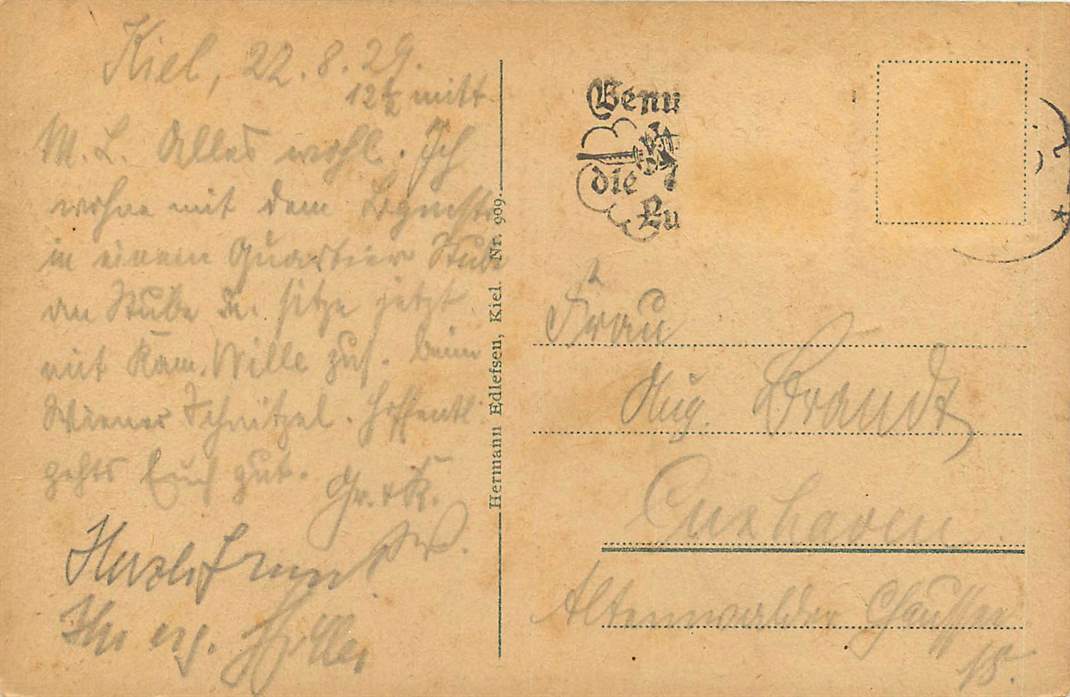 Kiel, 22. 8. 29.
12½ mitt
M. L. Alles wohl. Ich
wohne mit dem
in einem Quartier Stube
an Stube. sitze jetzt
mit Kam. Wille zus. beim
Wiener Schnitzel. Hoffentl.
gehts Euch gut.
Gr. + K.
Ihr erg. Wille
Hermann Edlefsen, Kiel. Nr. 909.
Benu
die
Lu
Frau
Aug. Brandt
Cuxhaven
Altenwalder Chaussee
15.